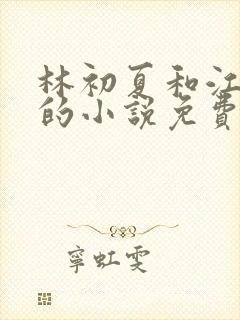 林初夏和江
的小說免費
寧虹雯